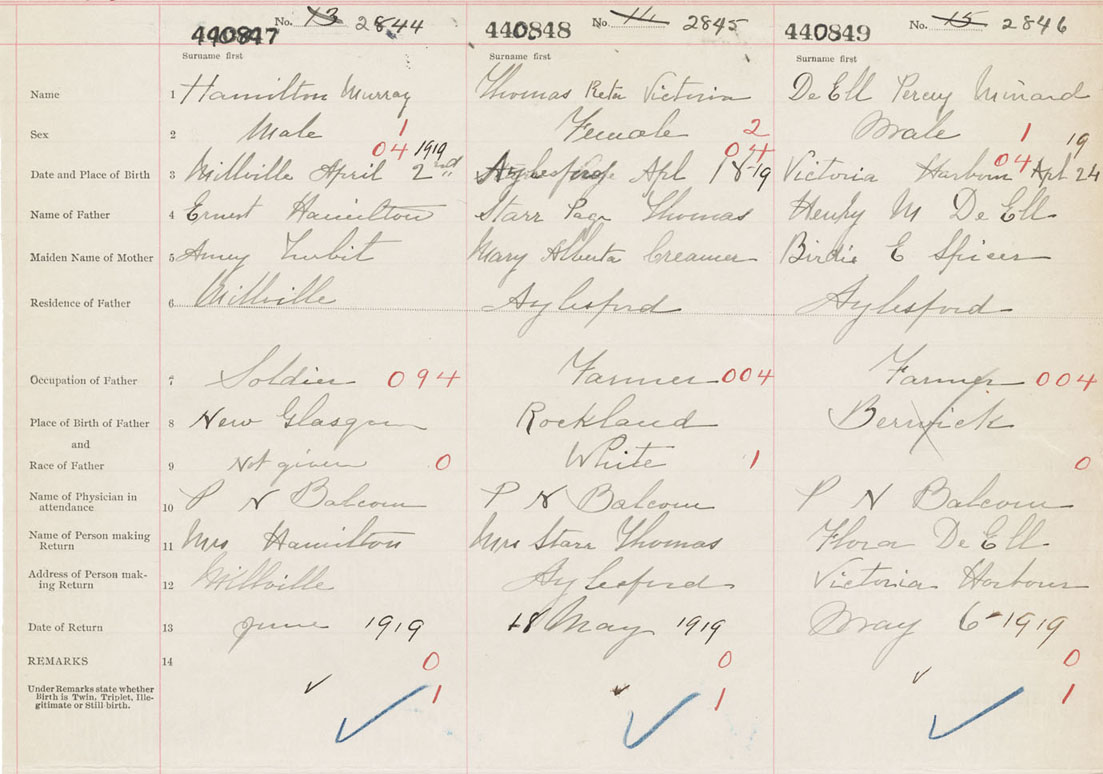 No. 13 2844 No. 14 2845 No. 15 2846
440847 440848 440849
Surname first Surname first Surname first
Name 1 Hamilton Murray Thomas Reta Victoria DeEll Percy Minard
Sex 2 Male 1 Female 2 Male 1
04 1919 04 04 19
Date and Place of Birth 3 Millville April 2nd Aylesford Apl 18-19 Victoria Harbour Apl 24
Name of Father 4 Ernest Hamilton Starr Page Thomas Henry M DeEll
Maiden Name of Mother 5 Amey Mary Alberta Creamer Birdie E Spicer
Residence of Father 6 Millville Aylesford Aylesford
Occupation of Father 7 Soldier 094 Farmer 004 Farmer 004
Place of Birth of Father 8 New Glasgow Rockland Berwick
and
Race of Father 9 Not given 0 White 1 0
Name of Physician in
attendance 10 P N Balcom P N Balcom P N Balcom
Name of Person making
Return 11 Mrs Hamilton Mrs Starr Thomas Flora DeEll
Address of Person mak-
ing Return 12 Millville Aylesford Victoria Harbour
Date of Return 13 June 1919 18 May 1919 May 6-1919
REMARKS 14 0 0 0
Under Remarks state whether
Birth is Twin, Triplet, Ille-
gitimate or Still birth. 1 1 1